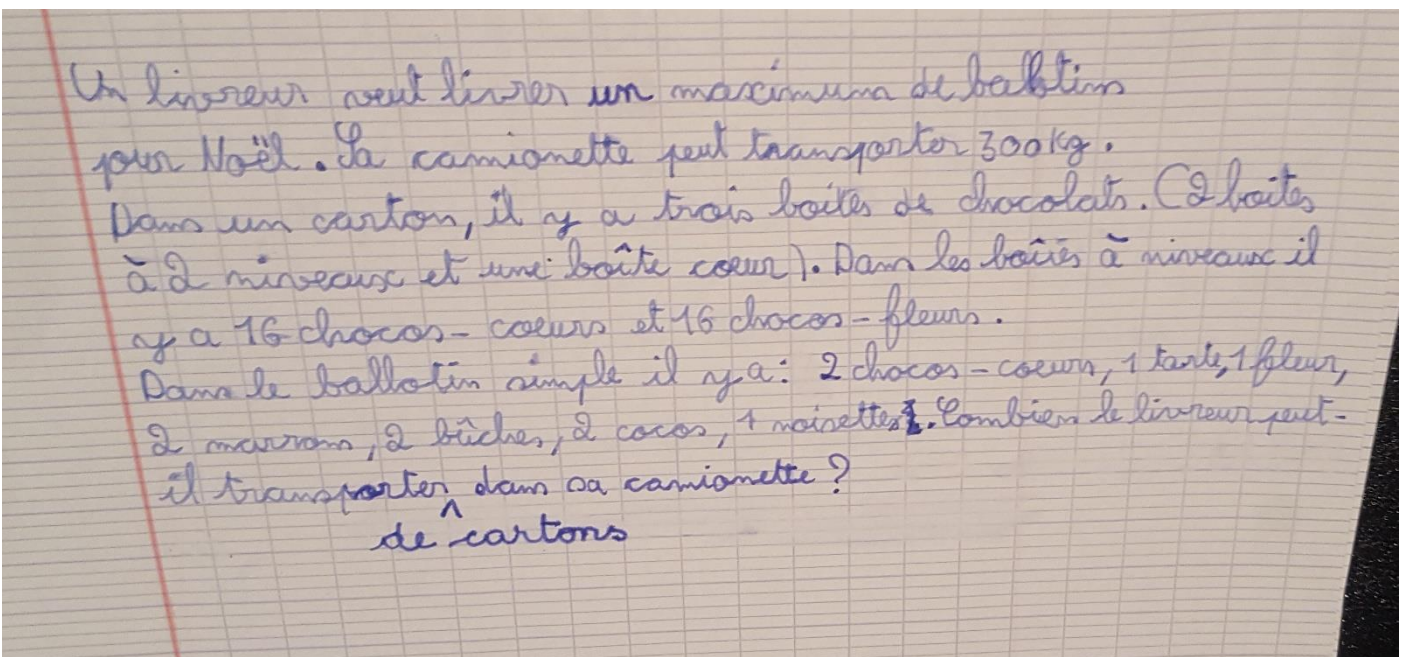 Un livreur veut livrer un maximum de ballotins
pour Noël. Sa camionette peut transporter 300kg.
Dans un carton, il y a trois boites de chocolats. (2 boites
à 2 niveaux et une boîte coeur). Dans les boîtes à niveaux il
y a 16 chocos-coeurs et 16 chocos-fleurs.
Dans le ballotin simple il y a: 2 chocos-coeurs, 1 tarte, 1 fleur,
2 marrons, 2 bûches, 2 cocos, 1 noisette. Combien le livreur peut-
il transporter dans sa camionette?
de cartons